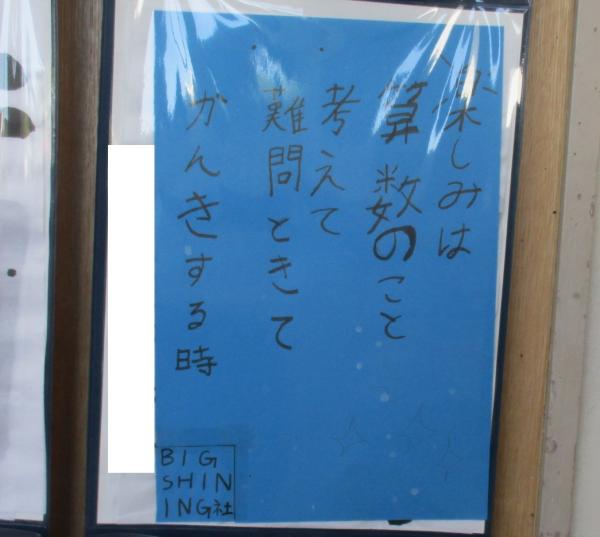 楽しみは
算数のこと
考えて
難問ときて
かんきする時
BIG
SHIN
ING社